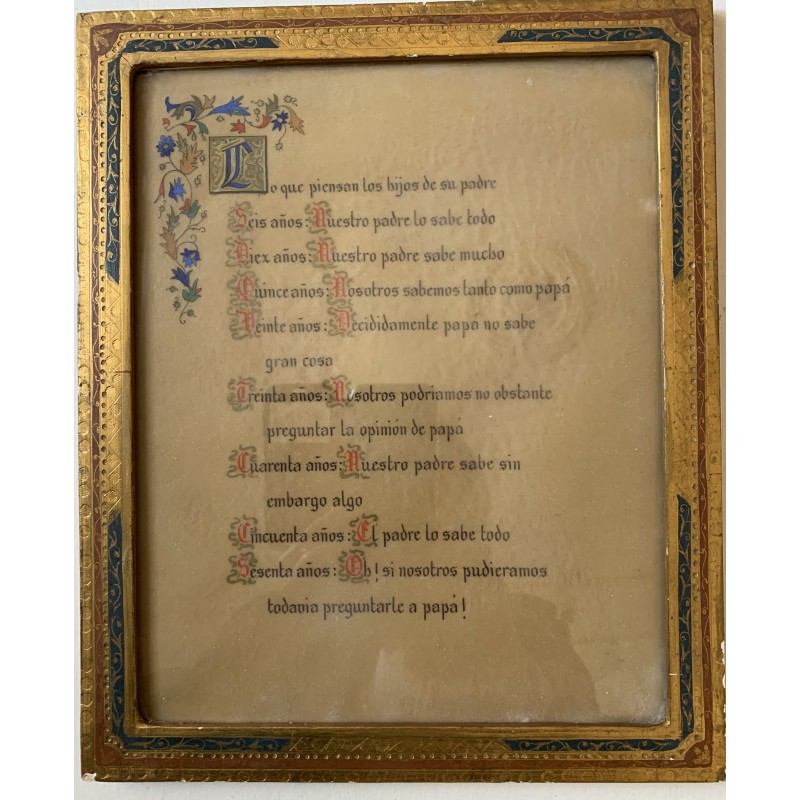 Lo que piensan los hijos de su padre
Seis años: Nuestro padre lo sabe todo
Diez años: Nuestro padre sabe mucho
Quince años: Nosotros sabemos tanto como papá
Veinte años: Decididamente papá no sabe
gran cosa
Treinta años: Nosotros podriamos no obstante
preguntar la opinión de papá
Cuarenta años: Nuestro padre sabe sin
embargo algo
Cincuenta años: El padre lo sabe todo
Sesenta años: Oh! si nosotros pudieramos
todavia preguntarle a papá!